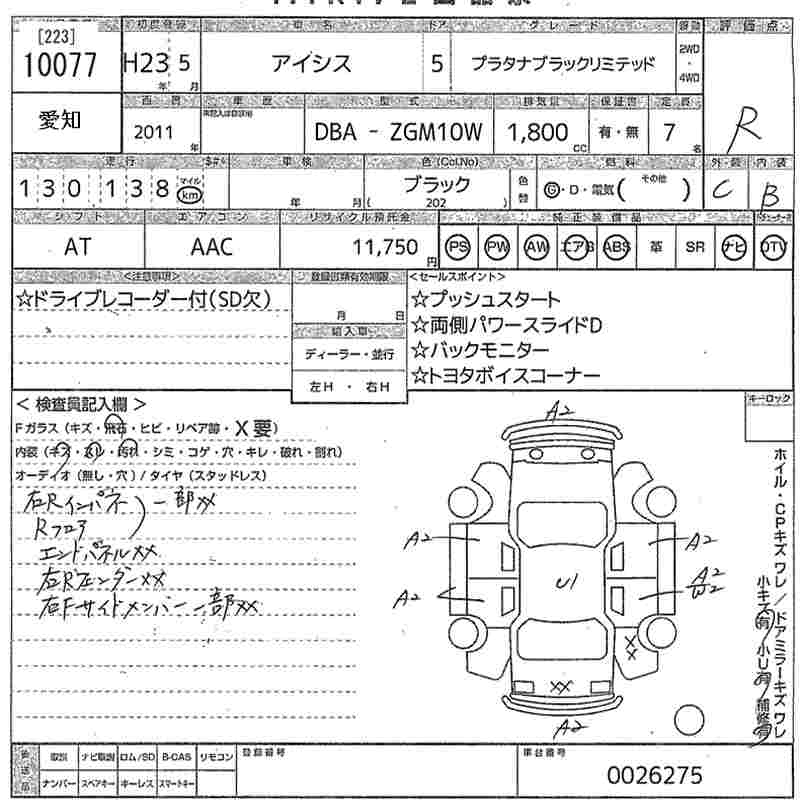 [223]
10077
初度登録
H23 5
年 月
車名
アイシス
ドア
5
グレード
プラタナブラックリミテッド
駆動
2WD
・
4WD
評価点
R
愛知
2011
年
車歴
型式
DBA - ZGM10W
排気量
1,800
CC
保証書
有・無
定員
7
名
走行
130,138
マイル
km
車検
年 月
色(Col.No)
ブラック
( 202 )
色替
燃料
G・D・電気( その他 )
外装
C
内装
B
シフト
AT
エアコン
AAC
リサイクル預託金
11,750
円
純正装備品
PS PW AW エアB ABS 革 SR ナビ DTV
<注意事項>
☆ドライブレコーダー付(SD欠)
登録書類有効期限
月 日
輸入車
ディーラー・並行
左H ・ 右H
<セールスポイント>
☆プッシュスタート
☆両側パワースライドD
☆バックモニター
☆トヨタボイスコーナー
キーロック
< 検査員記入欄 >
Fガラス(キズ・飛石・ヒビ・リペア跡・X要)
内装(キズ・汚れ・シミ・コゲ・穴・キレ・破れ・割れ)
オーディオ(無し・穴)/タイヤ(スタッドレス)
右Rインパネ
Rフロア
一部XX
エンドパネルXX
右Rフェンダー XX
右Fサイドメンバー 一部XX
A2
A2
A2
A2
A2
W2
U1
XX
XX
A2
ホイル・CPキズ ワレ/ドアミラーキズ ワレ
小キズ有 小U有 補修有
発送品
取説 ナビ取説 ロム/SD B-CAS リモコン
ナンバー スペアキー キーレス スマートキー
登録番号
車台番号
0026275